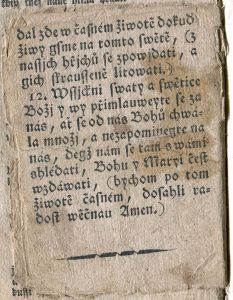 dal zde w časném žiwotě dokud
žiwy gsme na tomto swětě, (z
nassjch hřjchů se zpowjdati, a
gich skrausseně litowati.)
12. Wssjckni swatj a swětice
Božj y wy přimlauweyte se za
nás, ať se od nás Bohů chwá-
la množj, a nezapomjnegte na
nás, degž nám se tam s wámi
shledati, Bohu y Maryi čest
wzdáwati, (bychom po tom
žiwotě časném, dosáhli ra-
dost wěčnau Amen.)